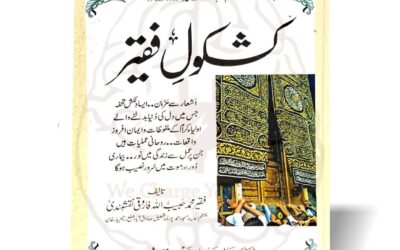 کشکولِ فقیر
اشعار سے مزیّن۔۔ ایسا دلکش تحفہ
جس میں دل کی دُنیا بدلنے والے
اولیاءِ کرامؒ کے ملفوظات و ایمان افروز
واقعات۔۔ روحانی عملیات ہیں
جن پر عمل سے زندگی میں نور۔۔ بیماری
دور اور موت میں سُرور نصیب ہوگا
تالیف
فقیر محمد حبیب اللہ فاروقی نقشبندی
We Charge Y